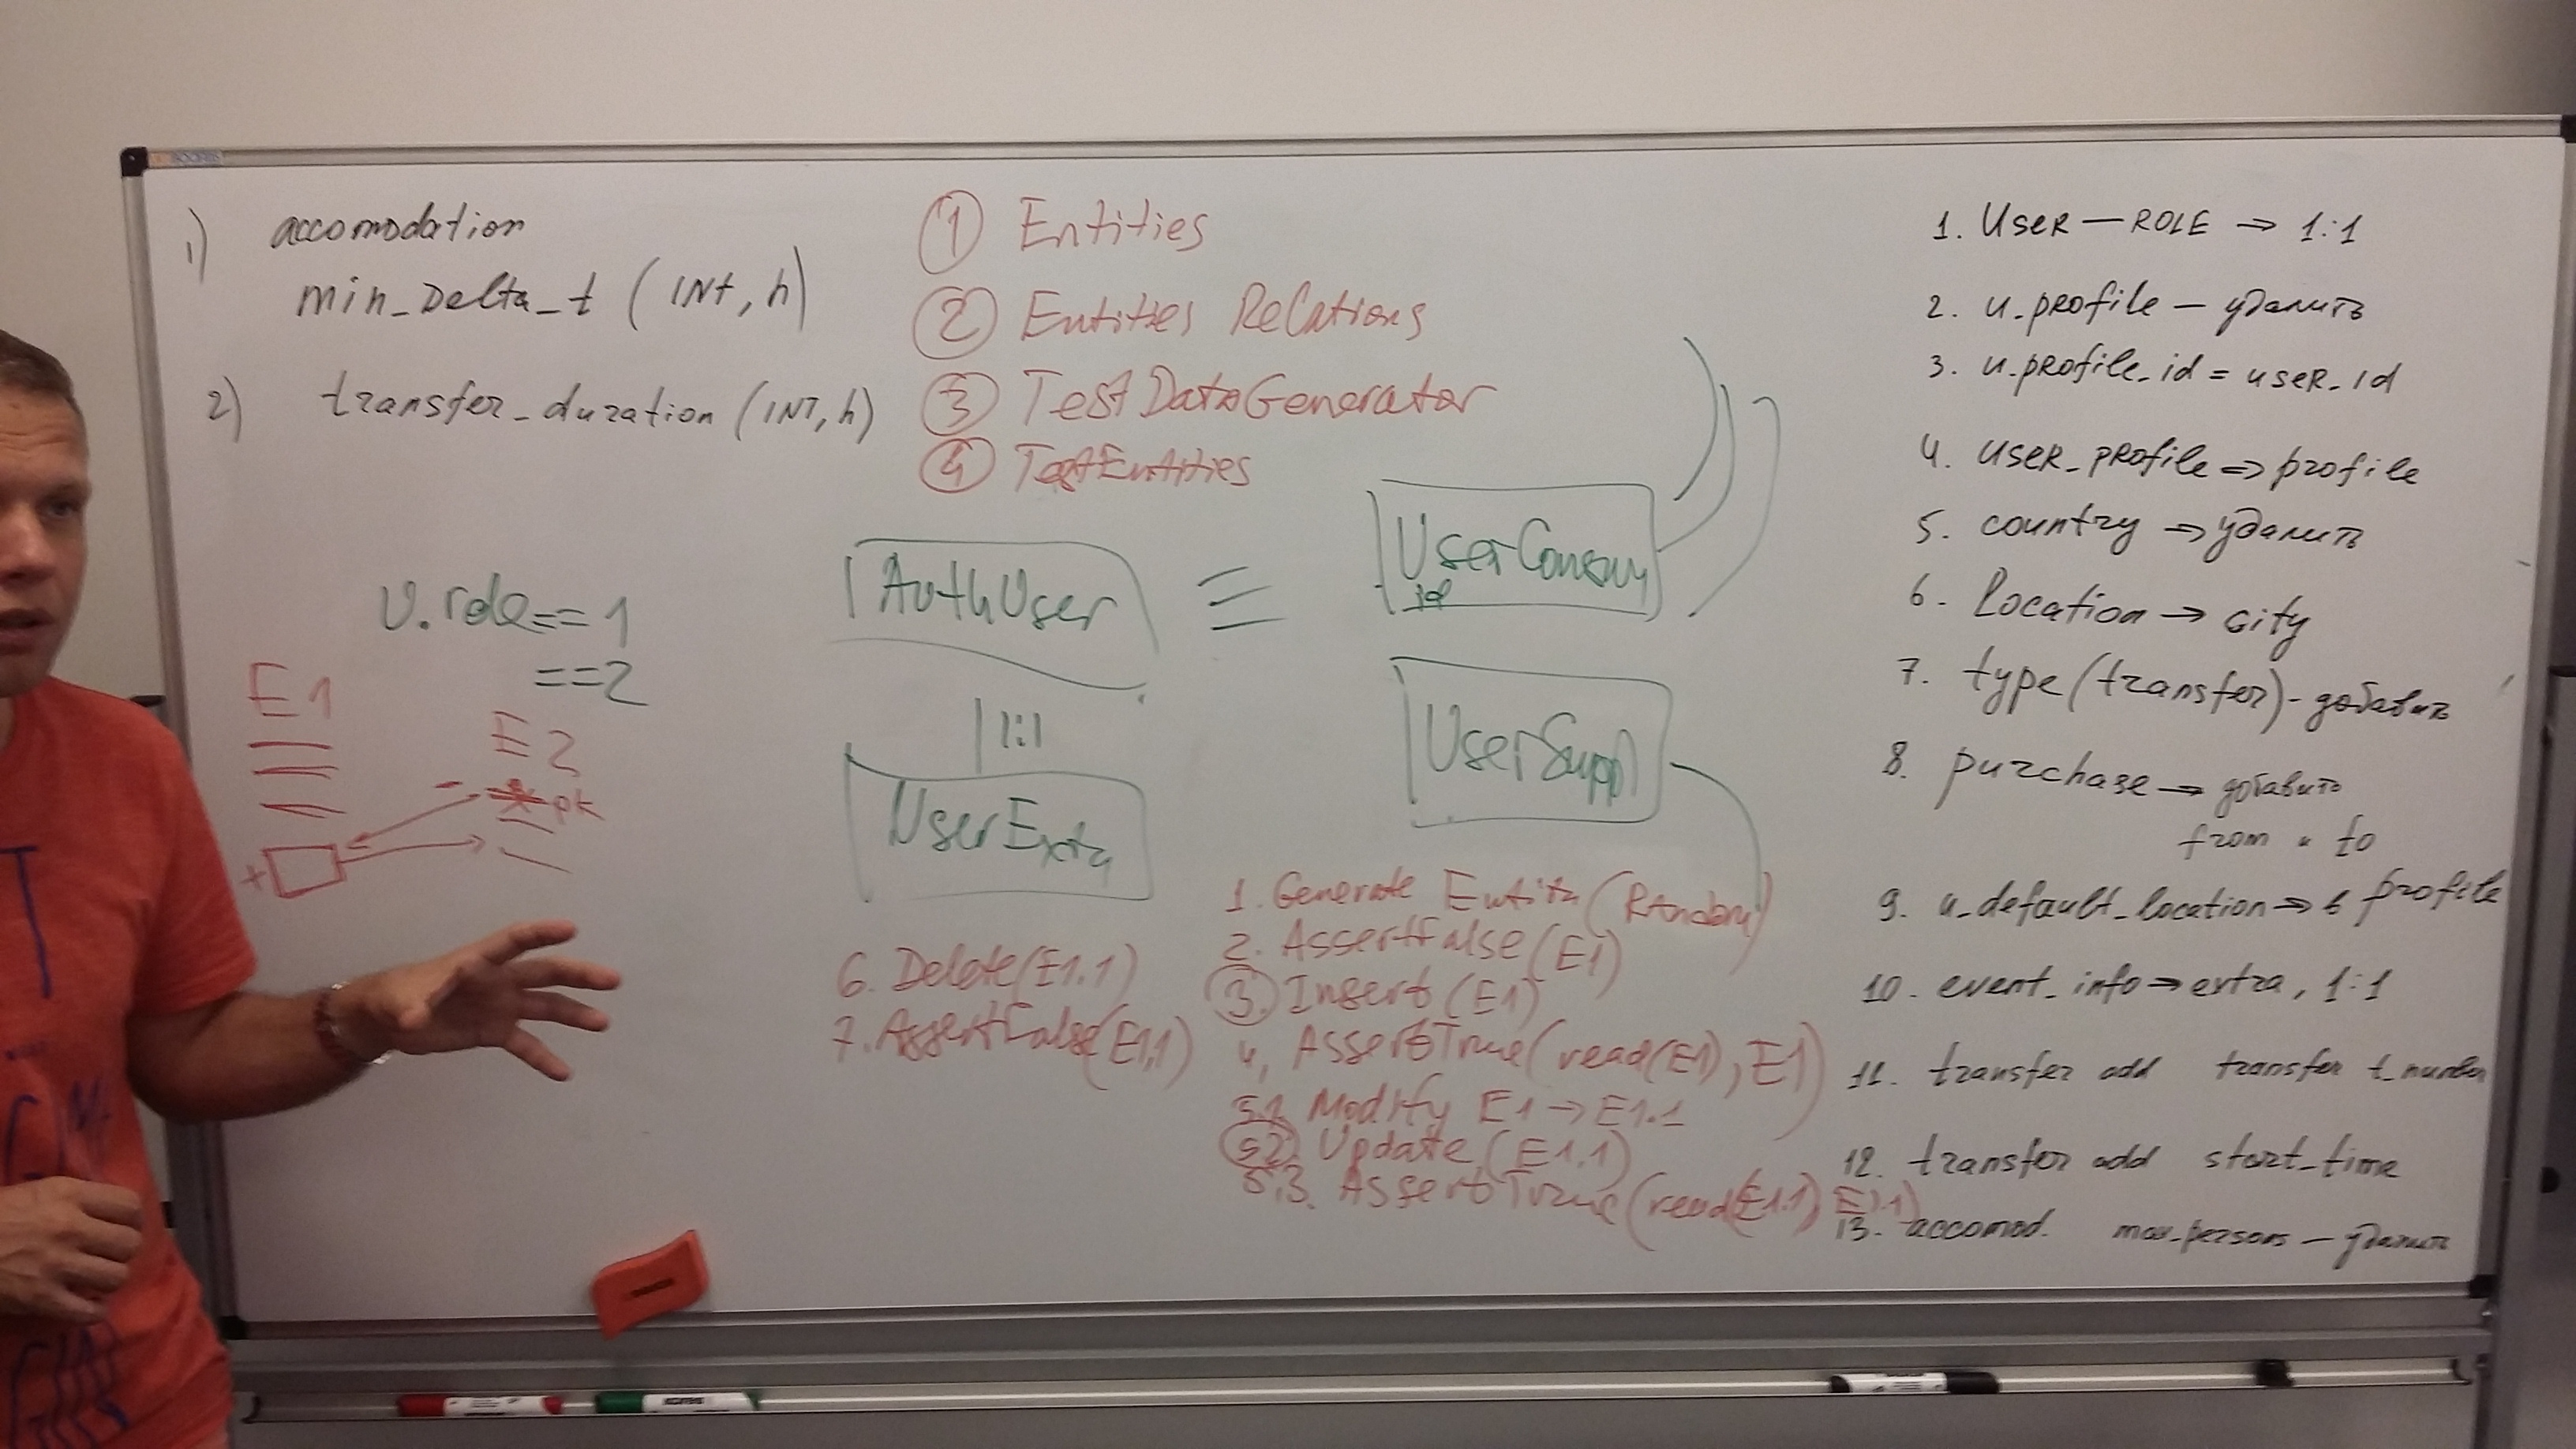 1) accomodation
min_Delta_t (INt, h)
2) transfer_duration (INT, h)
1 Entities
2 Entities Relations
3 TestDataGenerator
4 TestEntities
U.role==1
==2
E1
E2
pk
+
AuthUser
1:1
UserExtra
UserConsum
id
UserSuppl
1. Generate Entity (Random)
2. AssertFalse (E1)
3. Insert (E1)
4, AssertTrue (read(E1), E1)
5.1 Modify E1 → E1.1
5.2. Update (E1.1)
5.3. AssertTrue (read(E1.1), E1.1)
6. Delete (E1.1)
7. AssertFalse (E1,1)
1. User — ROLE ⇒ 1:1
2. u.profile — удалить
3. u.profile_id = user_id
4. user_profile ⇒ profile
5. country ⇒ удалить
6. Location → city
7. type (transfer) - добавить
8. purchase → добавить
from и to
9. u_default_location ⇒ в profile
10. event_info ⇒ extra, 1:1
11. transfer add transfer t_number
12. transfer add start_time
13. accomod. max_persons — удалить